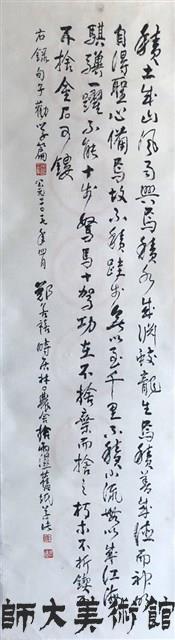 積土成山風雨興焉積水成淵蛟龍生焉積善成德而神明
自得聖心備焉故不積跬步無以至千里不積小流無以成江海
騏驥一躍不能十步駑馬十駕功在不捨棄而捨之朽木不折鍥而
不捨金石可鏤
右錄荀子勸學篇 公元二 年四月 鄭善禧時居林口農舍撿 舊紙
師大美術館